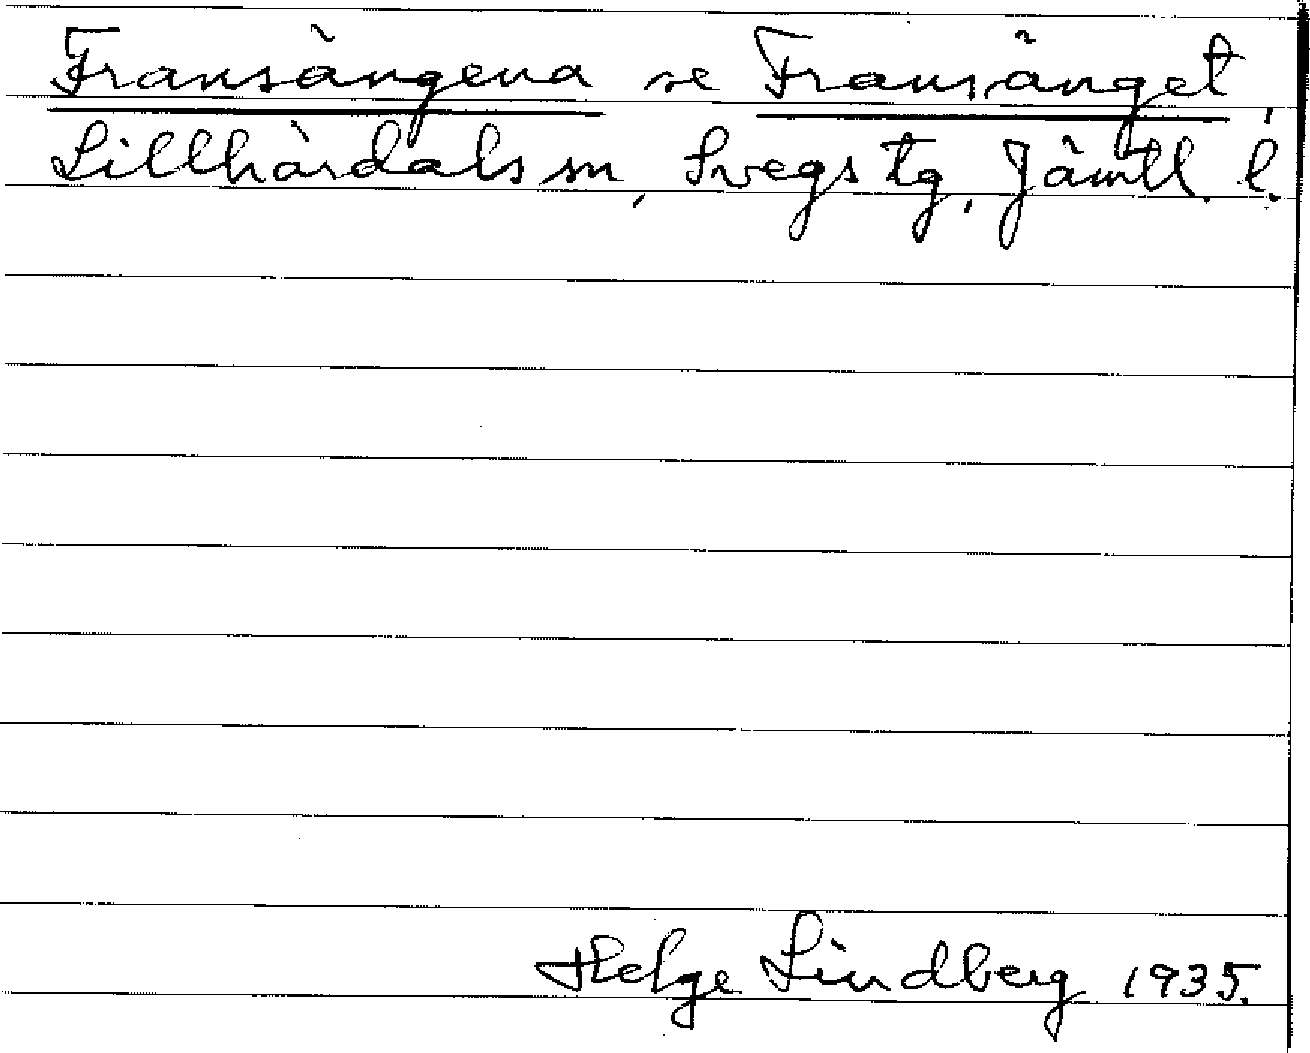 Fransängena se Fransänget,
Lillhärdals sn, Svegs tg, Jämtl. l.
Helge Lindberg 1935.